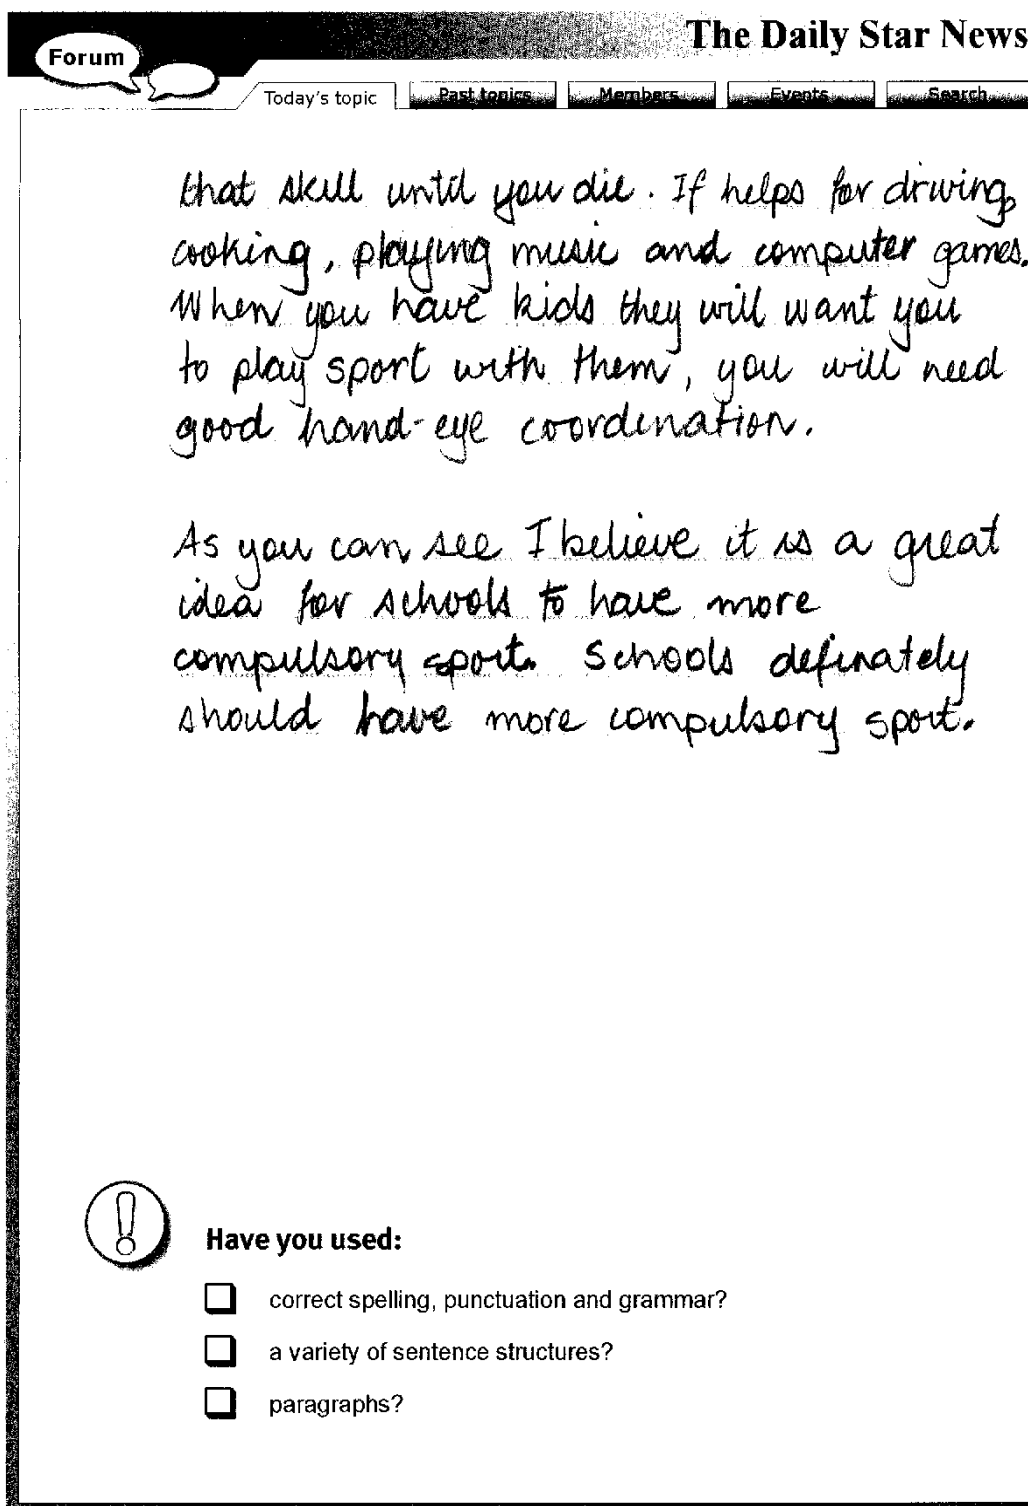 The Daily Star News
Forum
Today's topic
Past topics
Members
Events
Search
that skill until you die. If helps for driving,
cooking, playing music and computer games.
When you have kids they will want you
to play sport with them, you will need
good hand-eye coordination.
As you can see I believe it is a great
idea for schools to have more
compulsory sport. Schools definately
should have more compulsory sport.
Have you used:
correct spelling, punctuation and grammar?
a variety of sentence structures?
paragraphs?